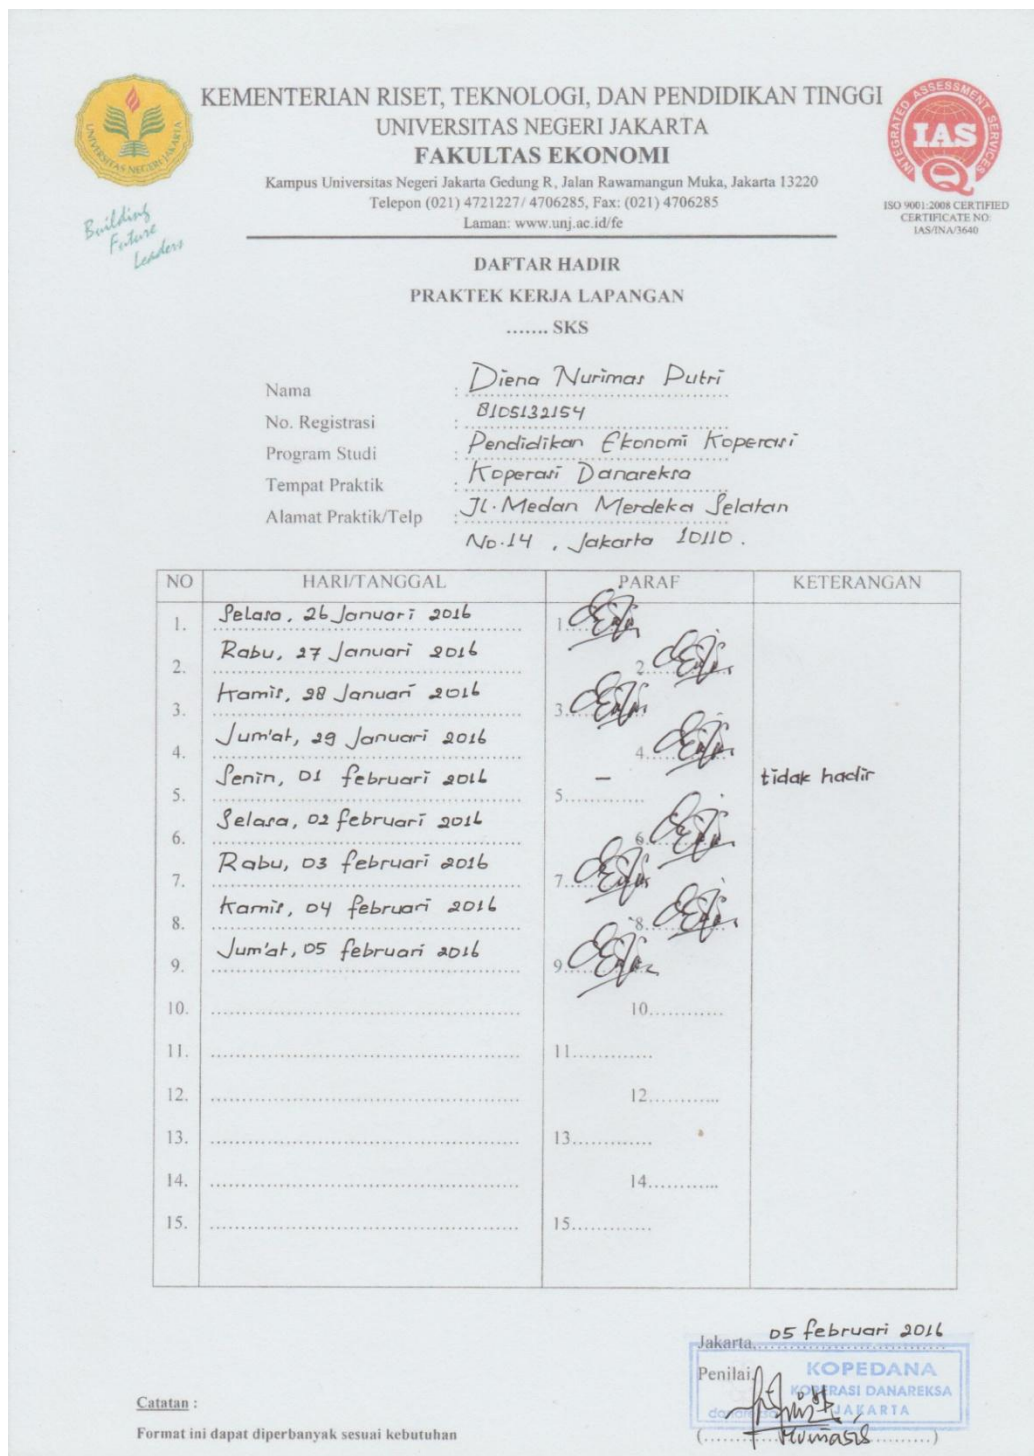 KEMENTERIAN RISET, TEKNOLOGI, DAN PENDIDIKAN TINGGI
UNIVERSITAS NEGERI JAKARTA
FAKULTAS EKONOMI
Kampus Universitas Negeri Jakarta Gedung R, Jalan Rawamangun Muka, Jakarta 13220
Telepon (021) 4721227/ 4706285, Fax: (021) 4706285
Laman: www.unj.ac.id/fe
UNIVERSITAS NEGERI JAKARTA
Building
Future
Leaders
INTEGRATED ASSESSMENT SERVICES
IAS
Q
ISO 9001:2008 CERTIFIED
CERTIFICATE NO:
IAS/INA/3640
DAFTAR HADIR
PRAKTEK KERJA LAPANGAN
....... SKS
Nama : Diena Nurimas Putri
No. Registrasi : 8105132154
Program Studi : Pendidikan Ekonomi Koperasi
Tempat Praktik : Koperasi Danareksa
Alamat Praktik/Telp : Jl. Medan Merdeka Selatan
No.14 , Jakarta 10110.
NO HARI/TANGGAL PARAF KETERANGAN
1. Selasa, 26 Januari 2016 1.
2. Rabu, 27 Januari 2016 2.
3. Kamis, 28 Januari 2016 3.
4. Jum'at, 29 Januari 2016 4.
5. Senin, 01 februari 2016 5. – tidak hadir
6. Selasa, 02 februari 2016 6.
7. Rabu, 03 februari 2016 7.
8. Kamis, 04 februari 2016 8.
9. Jum'at, 05 februari 2016 9.
10. 10.
11. 11.
12. 12.
13. 13.
14. 14.
15. 15.
Jakarta, 05 februari 2016
Penilai,
KOPEDANA
KOPERASI DANAREKSA
JAKARTA
Catatan :
Format ini dapat diperbanyak sesuai kebutuhan